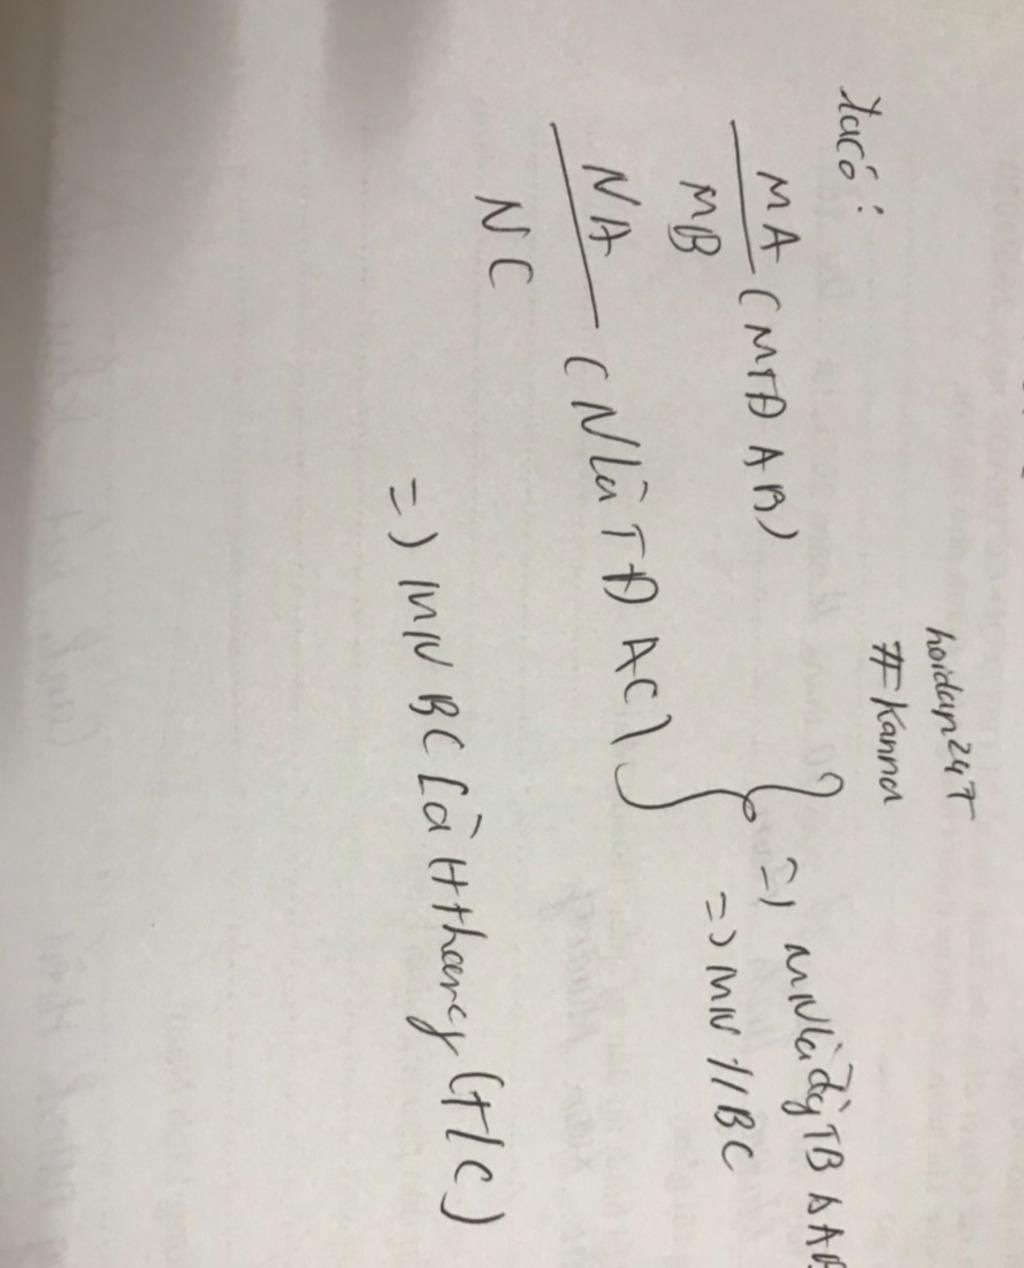 hoidap247
#Kanna
ta có :
MA
MB
(M TĐ AB)
NA
NC
(N là TĐ AC)
=) MN là đg TB Δ AB
=) MN // BC
=) MNBC là Hthang (t/c)